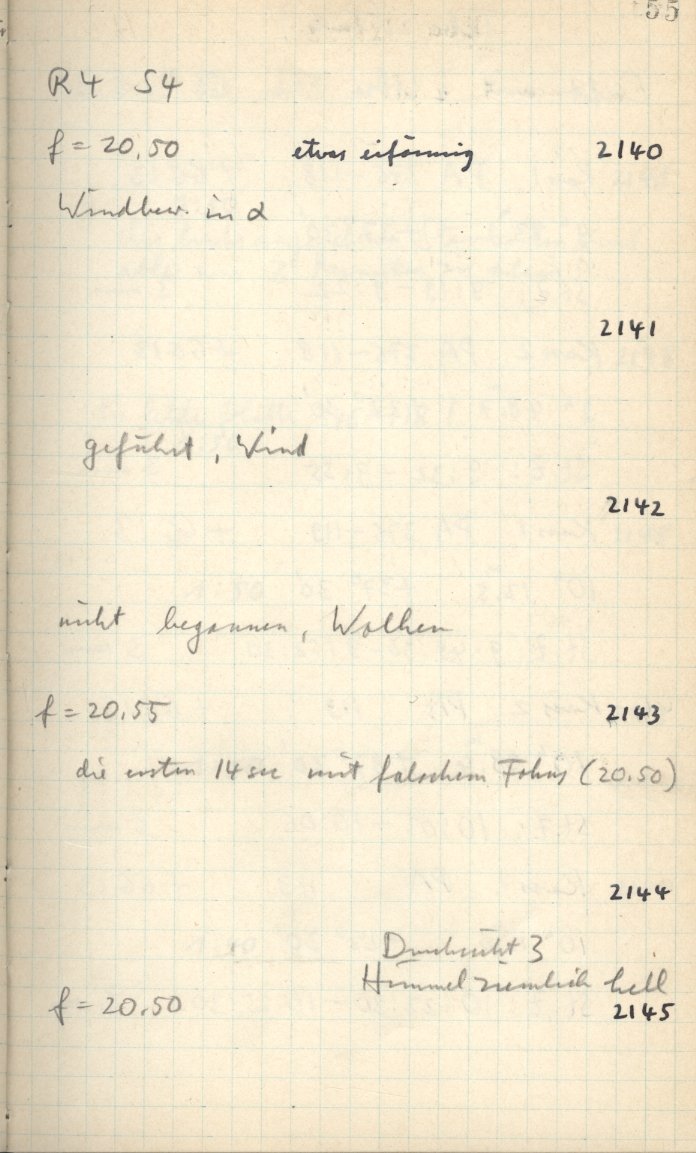 55
R4 S4
f = 20,50 etwas eiförmig 2140
Windbew. in α
2141
geführt, Wind
2142
nicht begonnen, Wolken
f = 20,55 2143
die ersten 14 sec mit falschem Fokus (20.50)
2144
Durchsicht 3
Himmel ziemlich hell
f = 20,50 2145